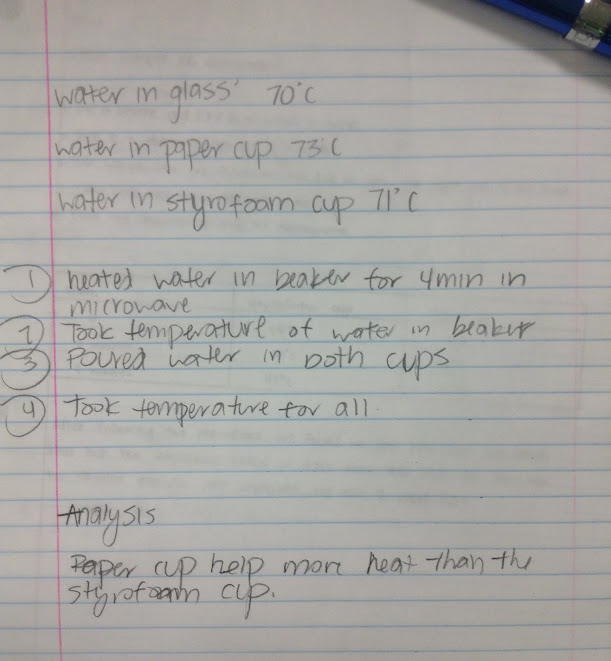 water in glass' 70°C
water in paper cup 73°C
water in styrofoam cup 71°C
① heated water in beaker for 4min in
microwave
② Took temperature of water in beaker
③ Poured water in both cups
④ Took temperature for all.
Analysis
Paper cup help more heat than the
styrofoam cup.